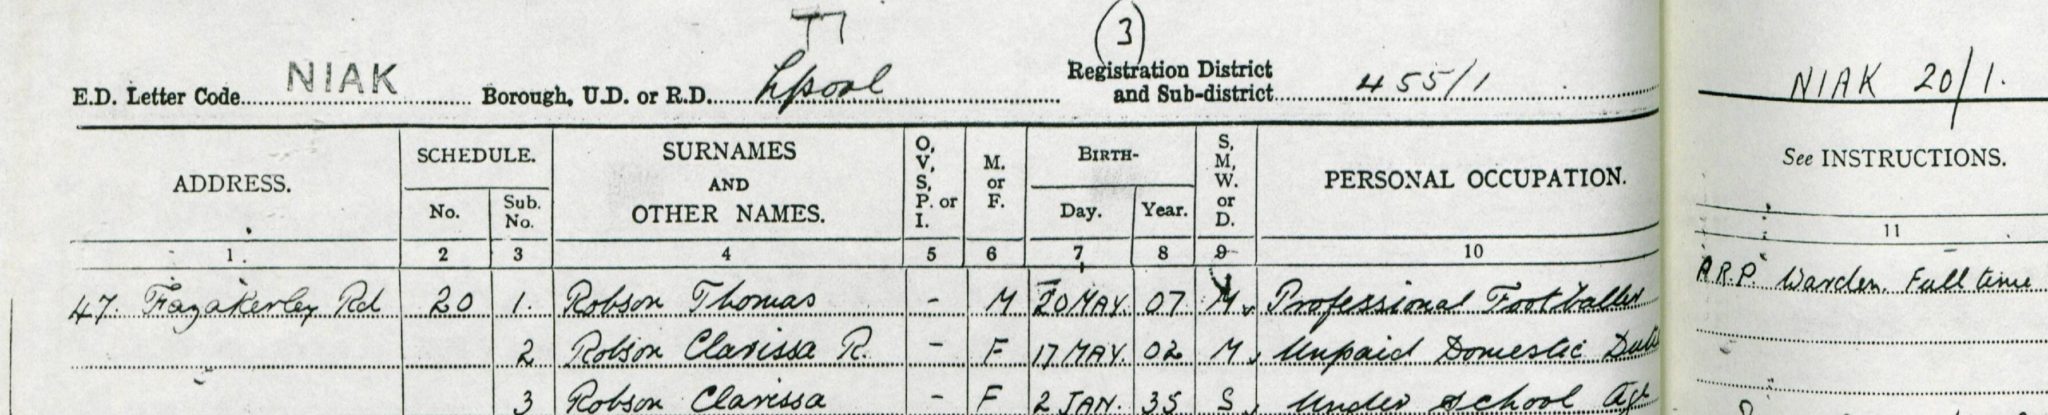 T7 (3)
E.D. Letter Code NIAK Borough, U.D. or R.D. Lpool Registration District and Sub-district 455/1 NIAK 20/1.
ADDRESS. SCHEDULE. No. Sub. No. SURNAMES AND OTHER NAMES. O, V, S, P. or I. M. or F. BIRTH- Day. Year. S, M, W. or D. PERSONAL OCCUPATION. See INSTRUCTIONS.
1. 2 3 4 5 6 7 8 9 10 11
47. Fazakerley Rd 20 1. Robson Thomas - M 20 MAY. 07 M, Professional Footballer A.R.P. Warden. Full time
2 Robson Clarissa R. - F 17 MAY. 02 M, Unpaid Domestic
3 Robson Clarissa - F 2 JAN. 35 S, Under School Age